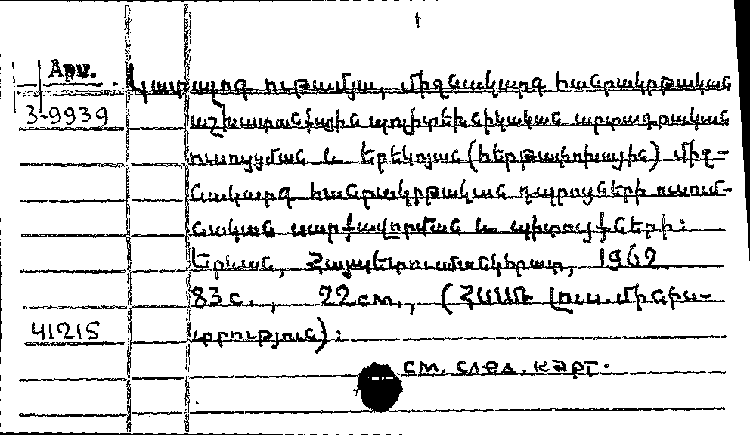 1
Арм.
3-9939
Կատալոգ ութամյա, միջնակարգ հանրակրթական
աշխատանքային պոլիտեխնիկական արտադրական
ուսուցման և երեկոյան (հերթափոխային) միջ-
նակարգ հանրակրթական դպրոցների ուսում-
նական սարքավորման և պիտույքների:
Երևան, Հայպետուսմանկհրատ, 1962
83с., 22см., (ՀՍՍՌ լուս. մինիս-
տրություն):
41215
см. след. карт.